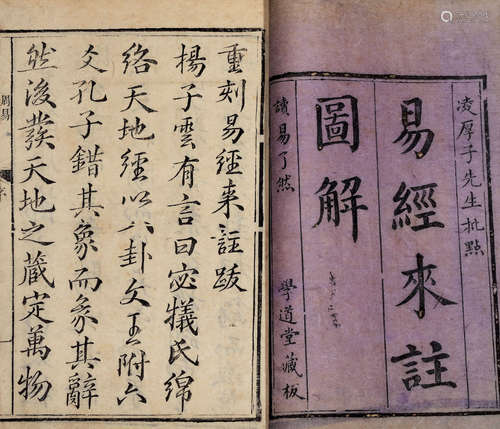 凌厚子先生批點
易經來註
圖解
讀易了然
學道堂藏板
重刻易經來註跋
揚子雲有言曰宓犧氏綿
絡天地經以八卦文王附六
爻孔子錯其象而彖其辭
然後發天地之藏定萬物
周易